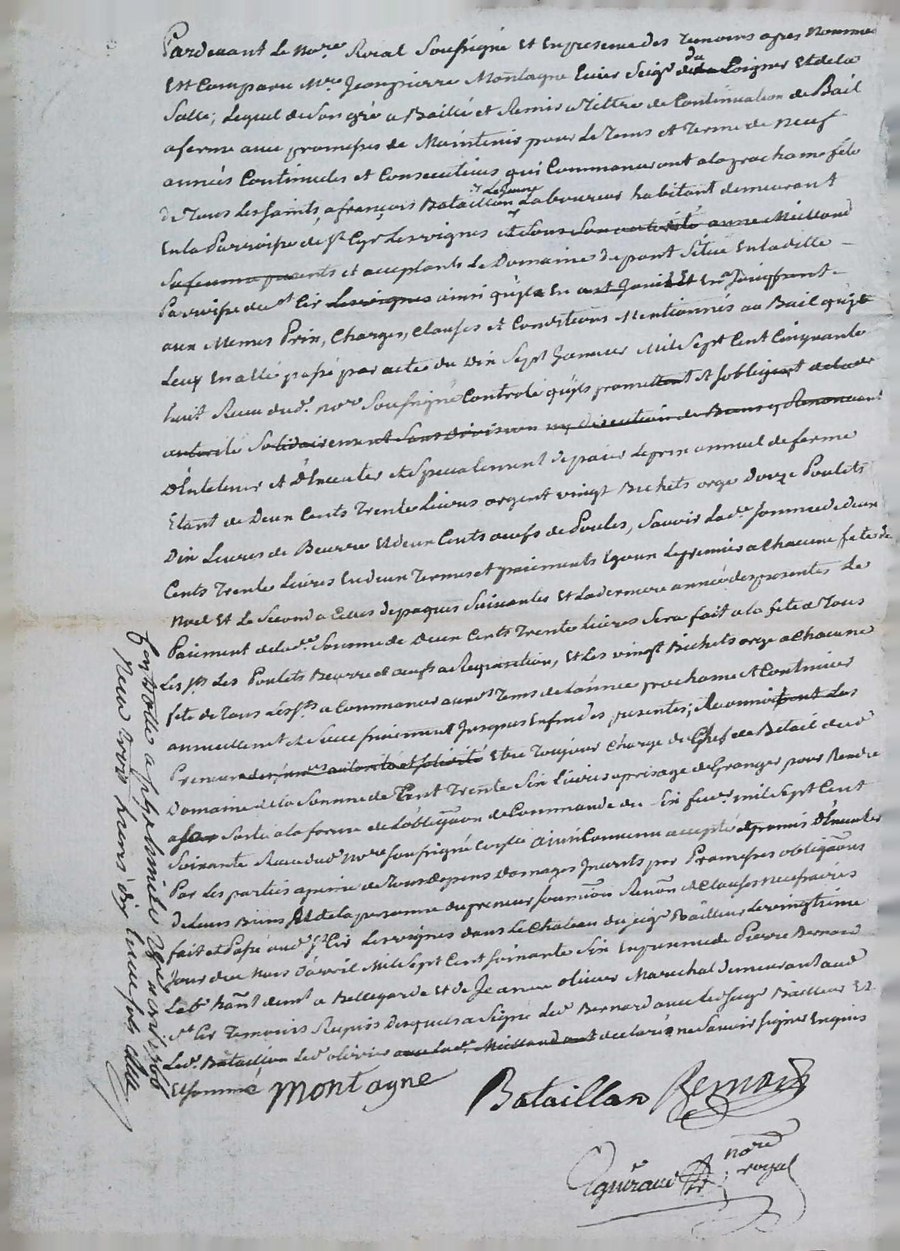 Pardevant Le no.re Roial Soussigné Et En presence des Temoins apres Nommes
Est Comparu M.re Jeanpierre Montagne Ecuier Seig.r du Poignes Et de la
Salle; Lequel de Son gré a Baillé et Remis a Tittre de Continuation de Bail
a ferme avec promesses de Maintenir pour Le Tems et Terme de neuf
années Continuelles et Consecutives qui Commanceront a la prochaine fête
de Tous Les saints, a françois Bataillon Le Jeune Laboureur habitant demeurant
En la Parroisse de S.t Cyr Les vignes et Sous Son autorité anne Milland
Sa femme presents et acceptants Le Domaine Dupont Situé En laditte
Parroisse de S.t Cir Les vignes ainsi qu'ils En ont Joui Et En Jouissent
aux Memes Prix, Charges, Clauses et Conditions Mentionnés au Bail qui
Leur En a été passé par acte du Dix Sept Janvier Mil Sept Cent Cinquante
huit Recu dud. no.re Soussigné Controlé qu'ils promettent Et s'obligent de lad.
autorité Solidairement Sans Division ny Discution de Biens y Renoncant
D'Entretenir et D'Executer et Specialement de paier Le prix annuel de ferme
Etant de Deux Cents Trente Livres argent vingt Bichets orge Douze Poulets
Dix Livres de Beurre Et deux Cents oeufs de Poules, Savoir La d.e somme de deux
Cents Trente Livres En deux Termes et paiements Egaux Le premier a Chacune fete de
Noel Et Le Second a Celles de paques Suivantes Et La derniere année des presentes Le
Paiement de la d.e Somme de Deux Cents Trente Livres Sera fait a la fete de Tous
Les S.ts Les Poulets Beurre et oeufs a Requisition, Et Les vingt Bichets orge a Chacune
fete de Tous Les S.ts a Commancer au Tems de L'année prochaine Et Continuer
annuellement Jusques En fin des presentes; Reconnoissent Les
Preneurs autorité et solidité Etre Toujour Chargé de Chef de Betail dud.
Domaine de la Somme de Cent Trente Six Livres a prisage de Granger pour Rendre
Sorte a la forme de L'obligaõn de Commande du Six fev.er mil Sept Cent
Soixante Recu dud. No.re soussigné ainsi Convenu accepté et promis D'Executer
Par Les parties a peine de Tous Depens Domages Interets par Promesses obligaõns
De Leurs Biens Et de la personne du preneur soumissions Renõn Et Clauses necessaires
fait et Passé aud. S.t Cir Les vignes dans Le Chateau du seig.r Bailleur Le vingtieme
Jour du Mois D'avril Mil Sept Cent Soixante Six En presence de Pierre Bernard
Lab.r haĩnt demt a Bellegarde Et de Jeanne olivier Marechal demeurant aud.
S.t Cir Temoins Requis Desquels a Signé Led. Bernard avec Led. Seig.r Bailleur Et
Led. Bataillon Led. olivier avec Lad. Milland ont declaré ne Savoir signer Enquis
Et Sommé
Montagne
Bataillan Bernard
no.re
royal
Controllé a
Recu